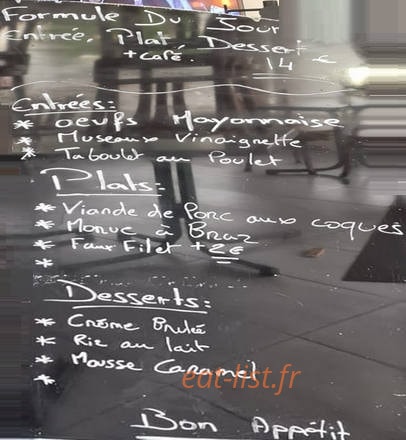 Formule Du Jour
Entrée, Plat, Dessert
+ café. 14 €
Entrées:
* oeufs Mayonnaise
* Museaux Vinaigrette
* Taboulet au Poulet
Plats:
* Viande de Porc aux coques
* Morue à Braz
* Faux Filet +2€
*
Desserts:
* Crème Brulée
* Riz au lait
* Mousse Caramel
*
eat-list.fr
Bon Appétit